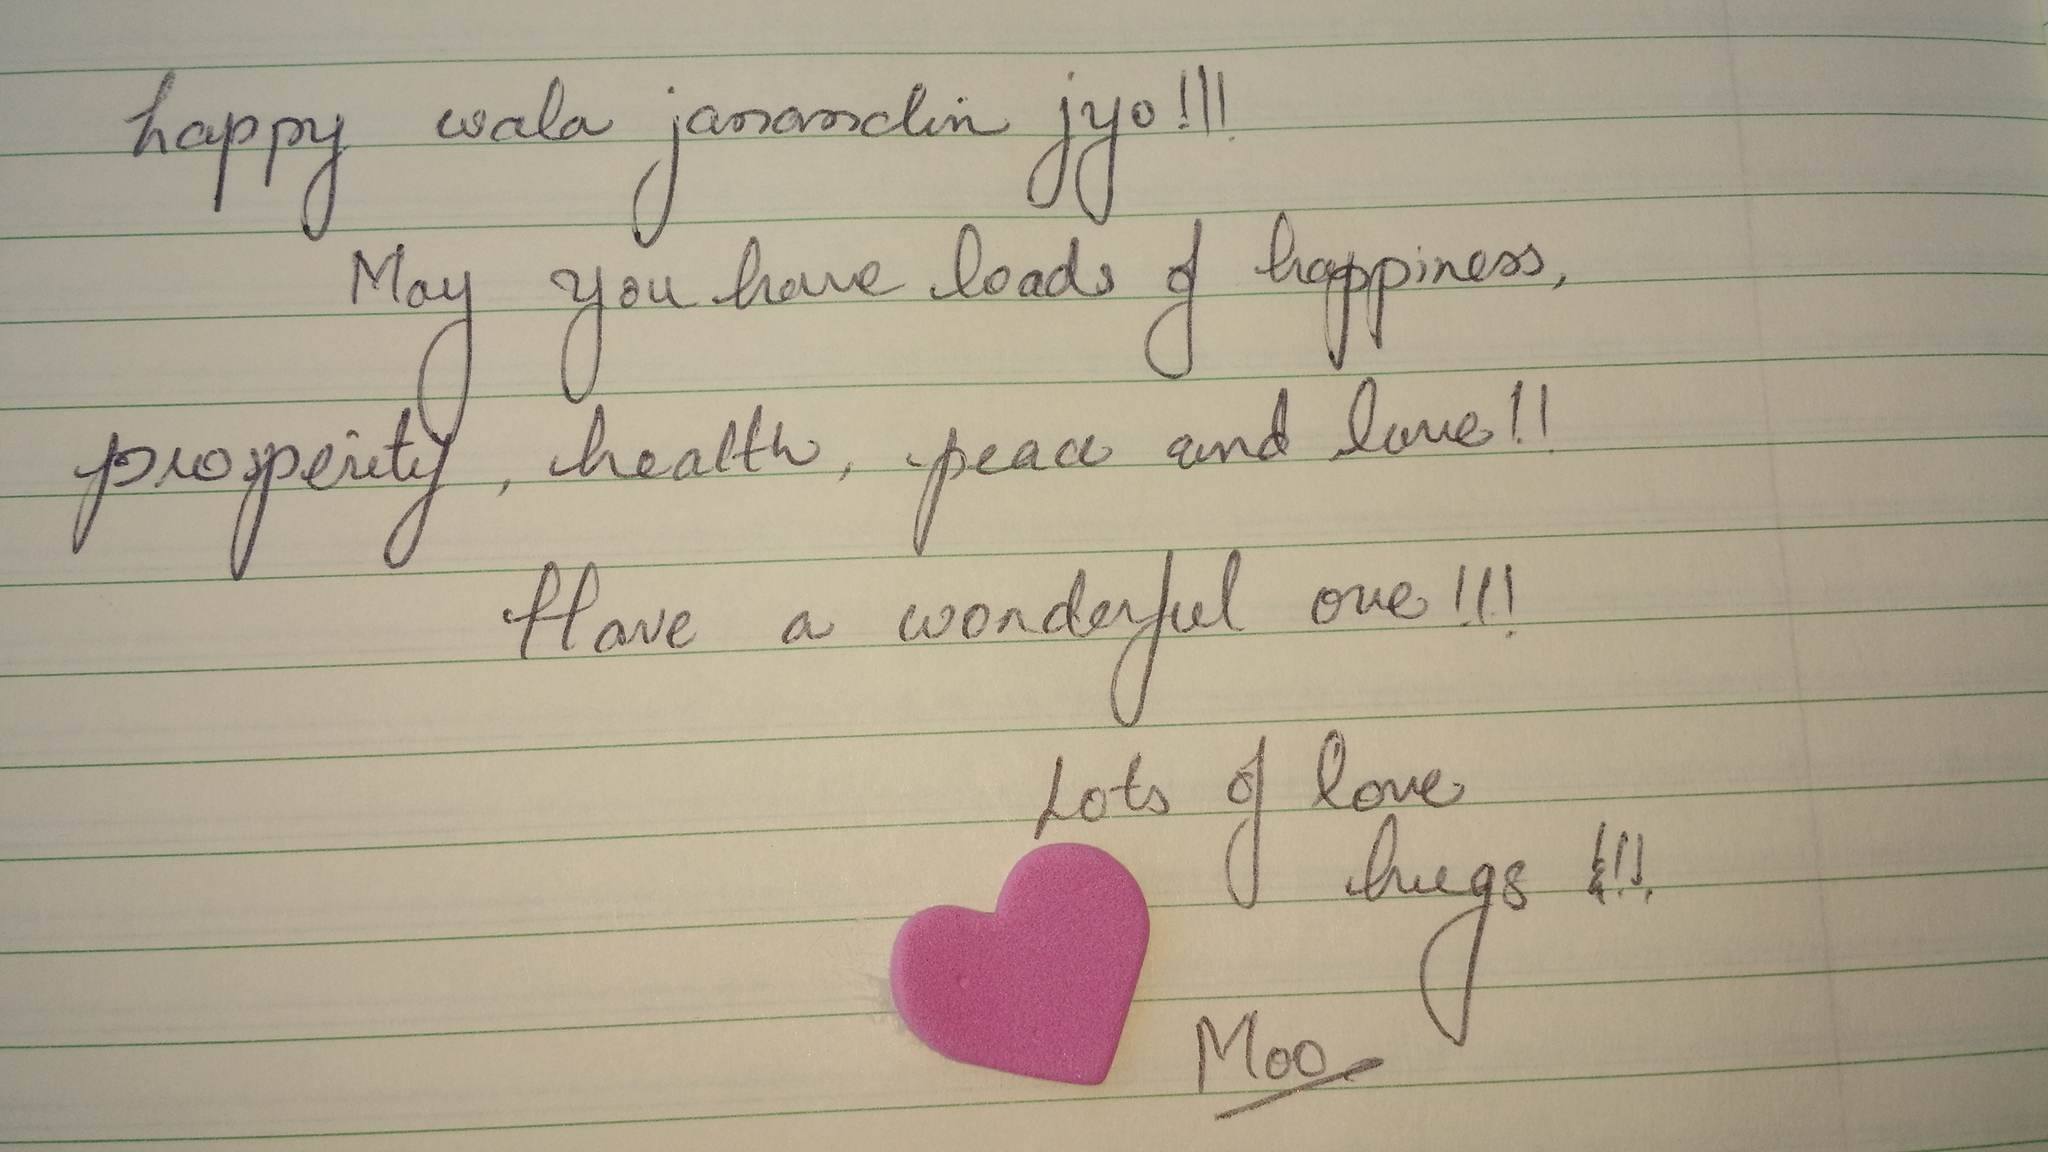 happy wala janamdin jyo!!!
May you have loads of happiness,
prosperity, health, peace and love!!
Have a wonderful one!!!
Lots of love
hugs !!!
Moo